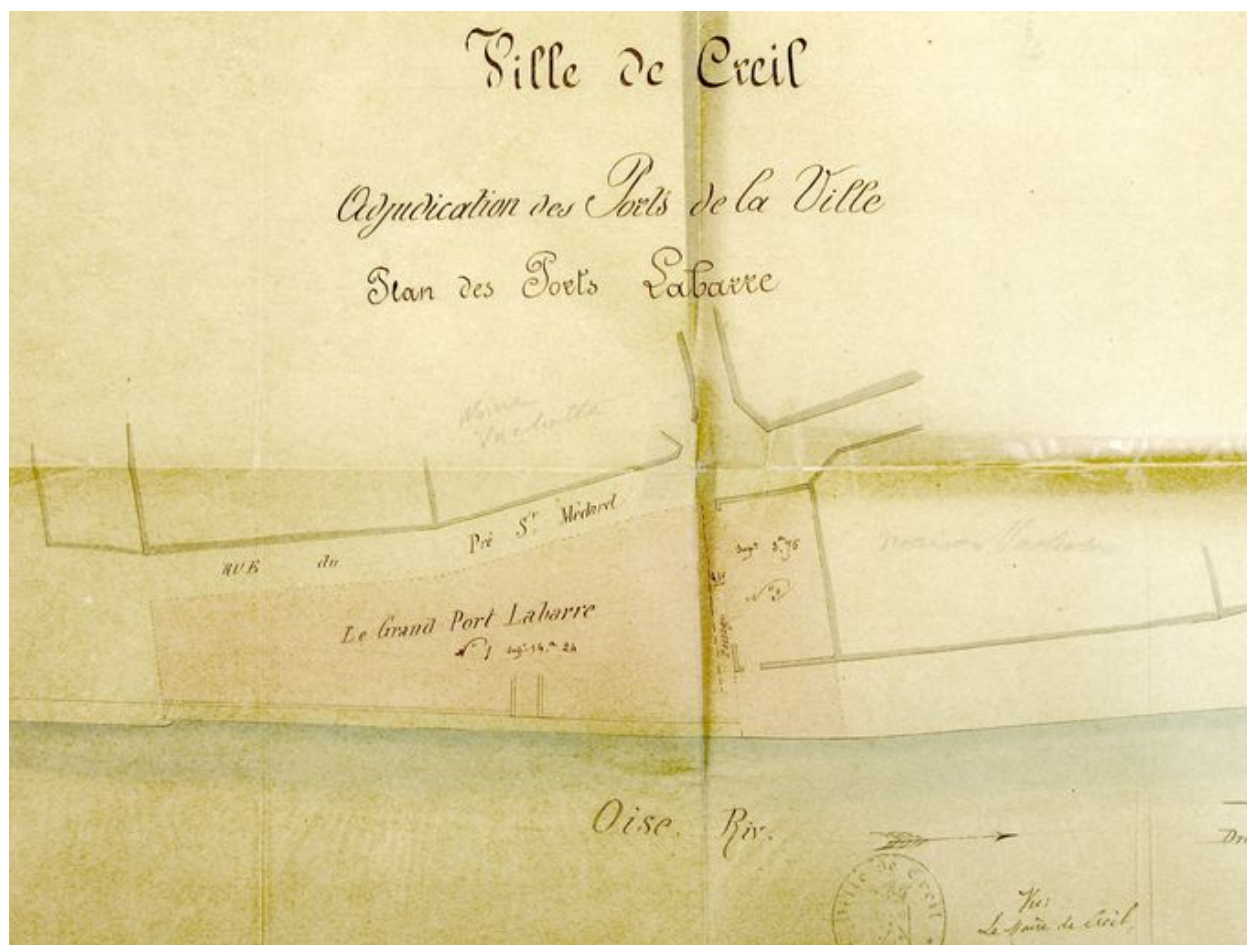 Ville de Creil
Adjudication des Ports de la Ville
Plan des Ports Labarre
RUE du Pré St Médard
Le Grand Port Labarre
N° 1 Surf. 14.a 24
Surf. 3.a 76
N° 2
Passage
maison
Oise. Riv.
Ville de Creil
Vu:
Le Maire de Creil,